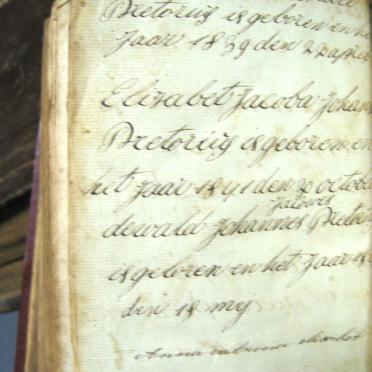 Pretorius is geboren en het
Jaar 1839 den 22 april
Elizabet Jacoba Johan
Pretorius is geboren en
het Jaar 1841 den 20 october
Jacobus
dewald Johannes Pretori
is geboren en het Jaar
den 18 mij
Anna